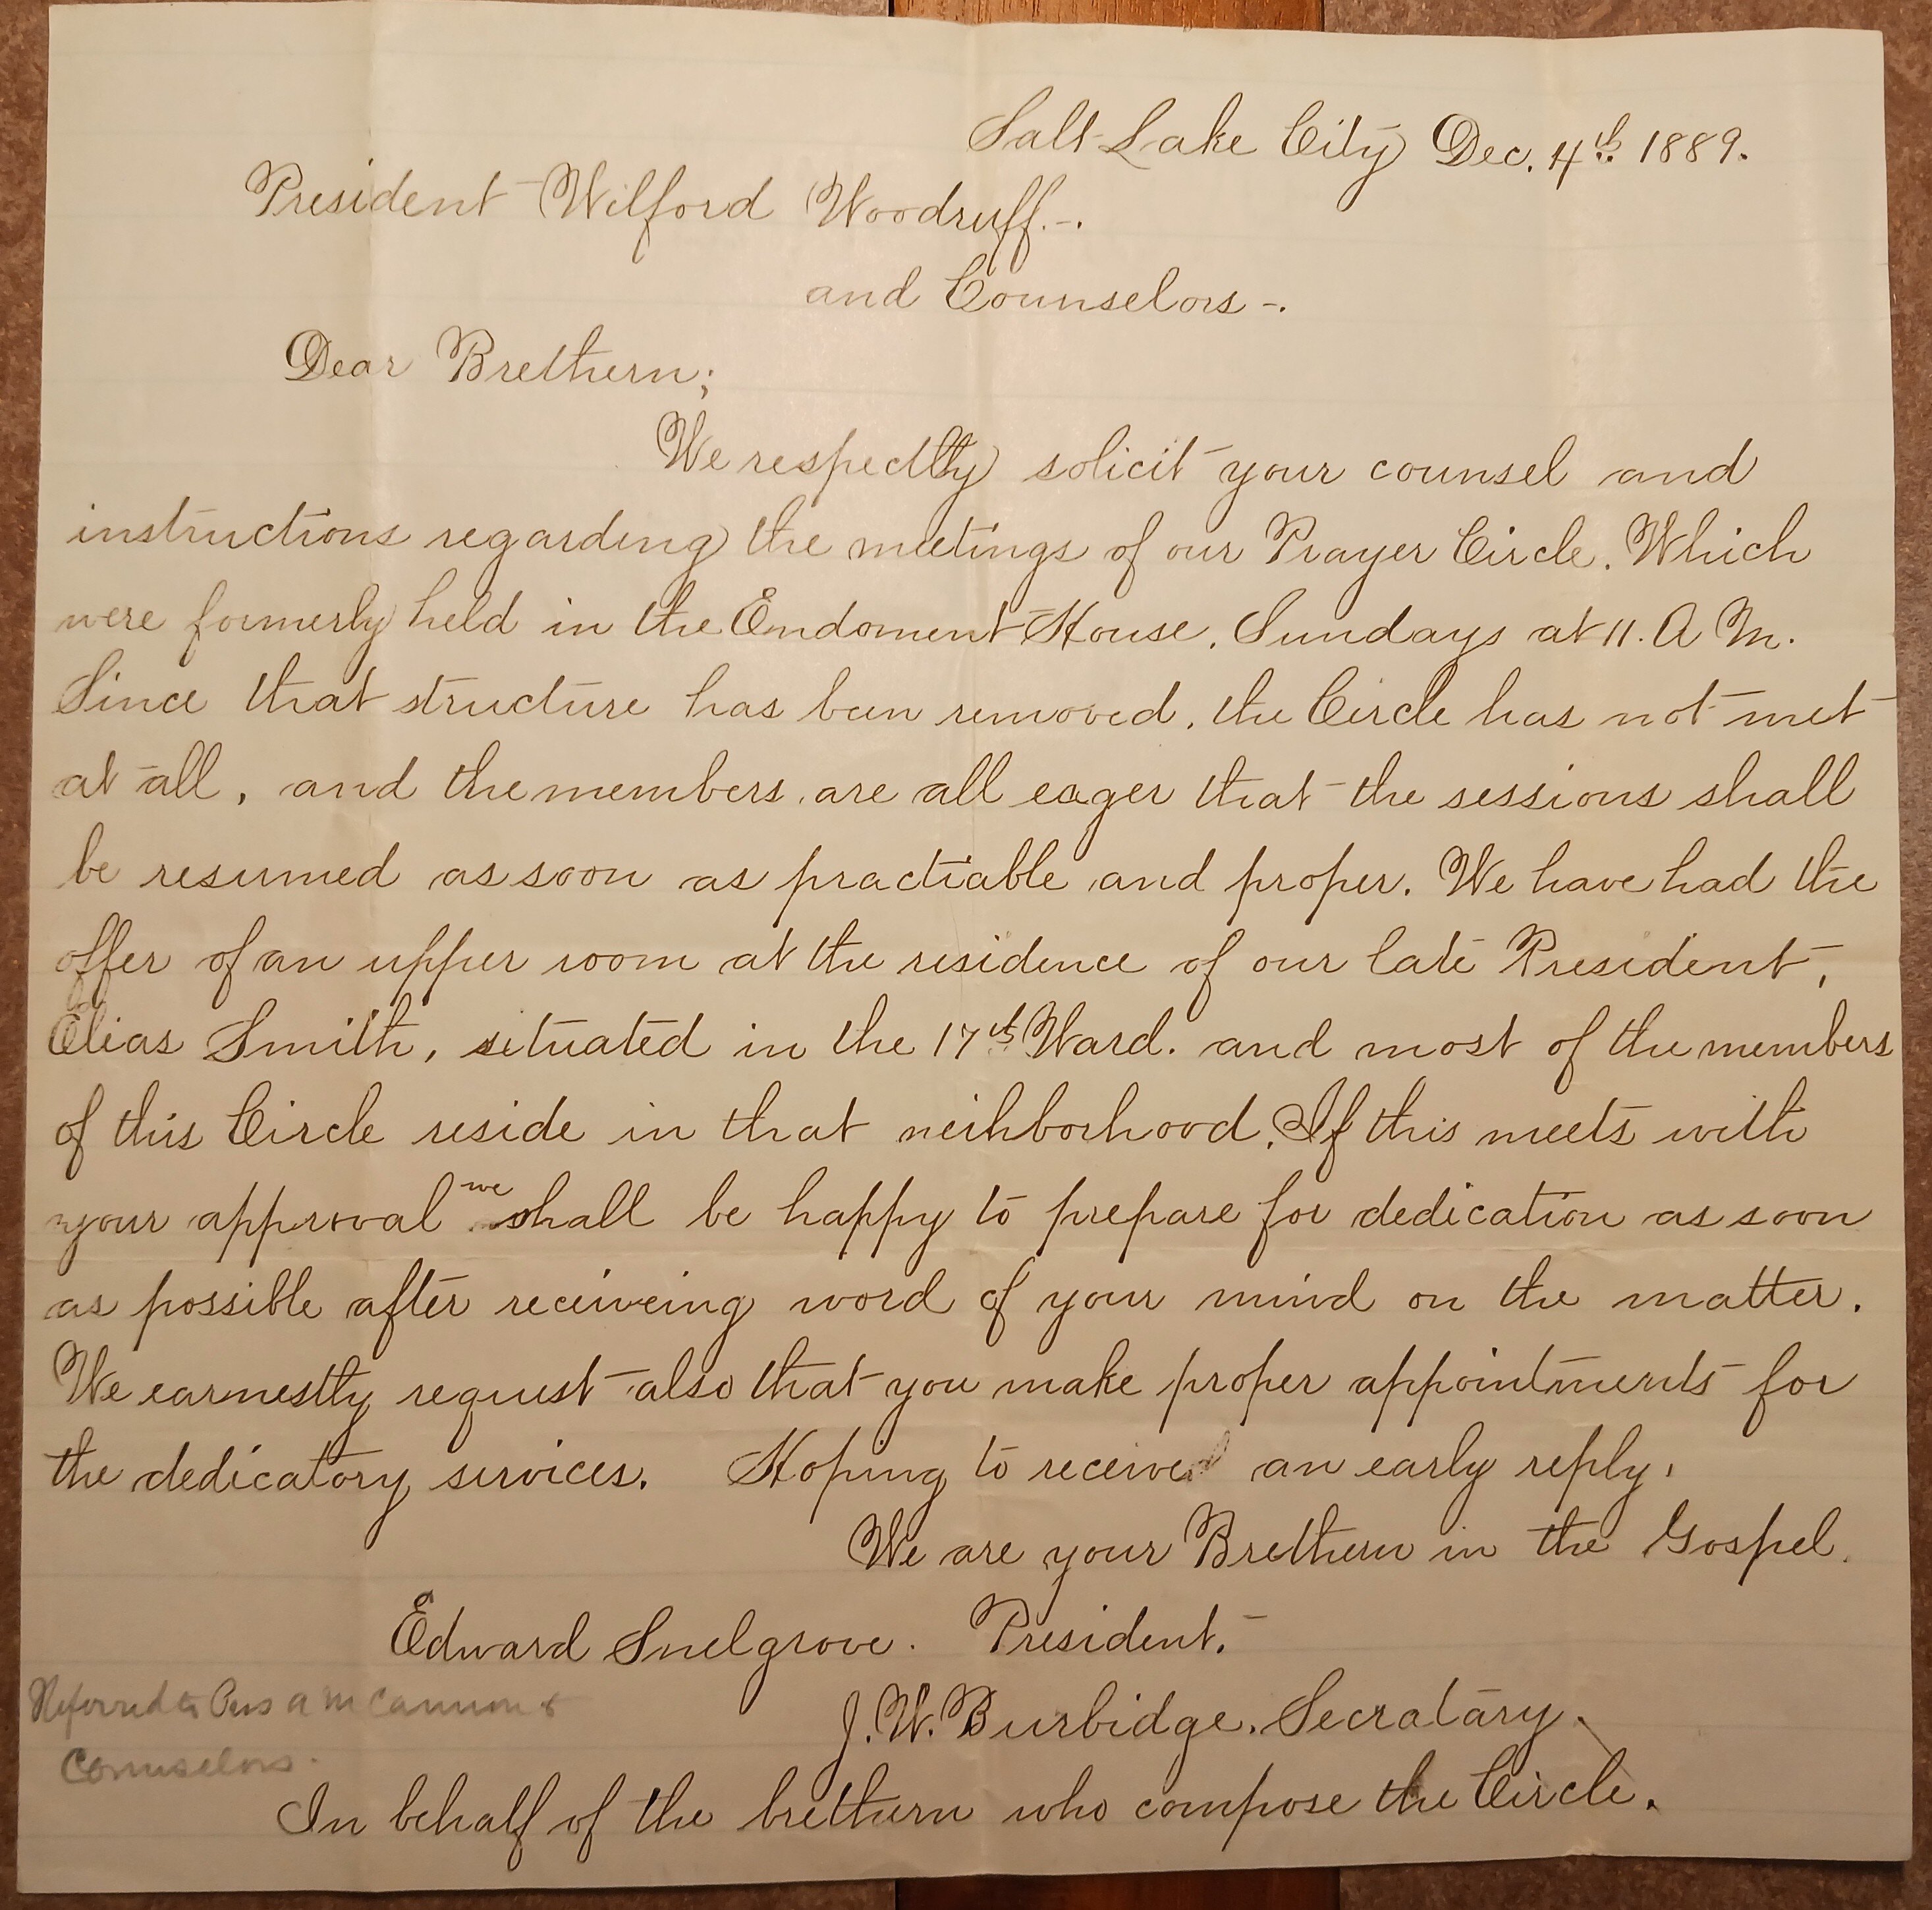 Salt Lake City Dec. 4th 1889.
President Wilford Woodruff.-.
and Counselors-.
Dear Brethern;
We respectlty solicit your counsel and
instructions regarding the meetings of our Prayer Circle. Which
were formerly held in the Endoment House, Sundays at 11. A M.
Since that structure has been removed, the Circle has not met
at all, and the members are all eager that the sessions shall
be resumed as soon as practiable and proper. We have had the
offer of an upper room at the residence of our late President,
Elias Smith, situated in the 17th Ward. and most of the members
of this Circle reside in that neihborhood. If this meets with
your approval we shall be happy to prepare for dedication as soon
as possible after receiveing word of your mind on the matter.
We earnestly request also that you make proper appointments for
the dedicatory services. Hoping to receive an early reply,
We are your Brethern in the Gospel.
Edward Snelgrove. President.
Referred to Pres A M Cannon &
J. W. Burbidge. Secratary.
Counselors.
In behalf of the brethern who compose the Circle.